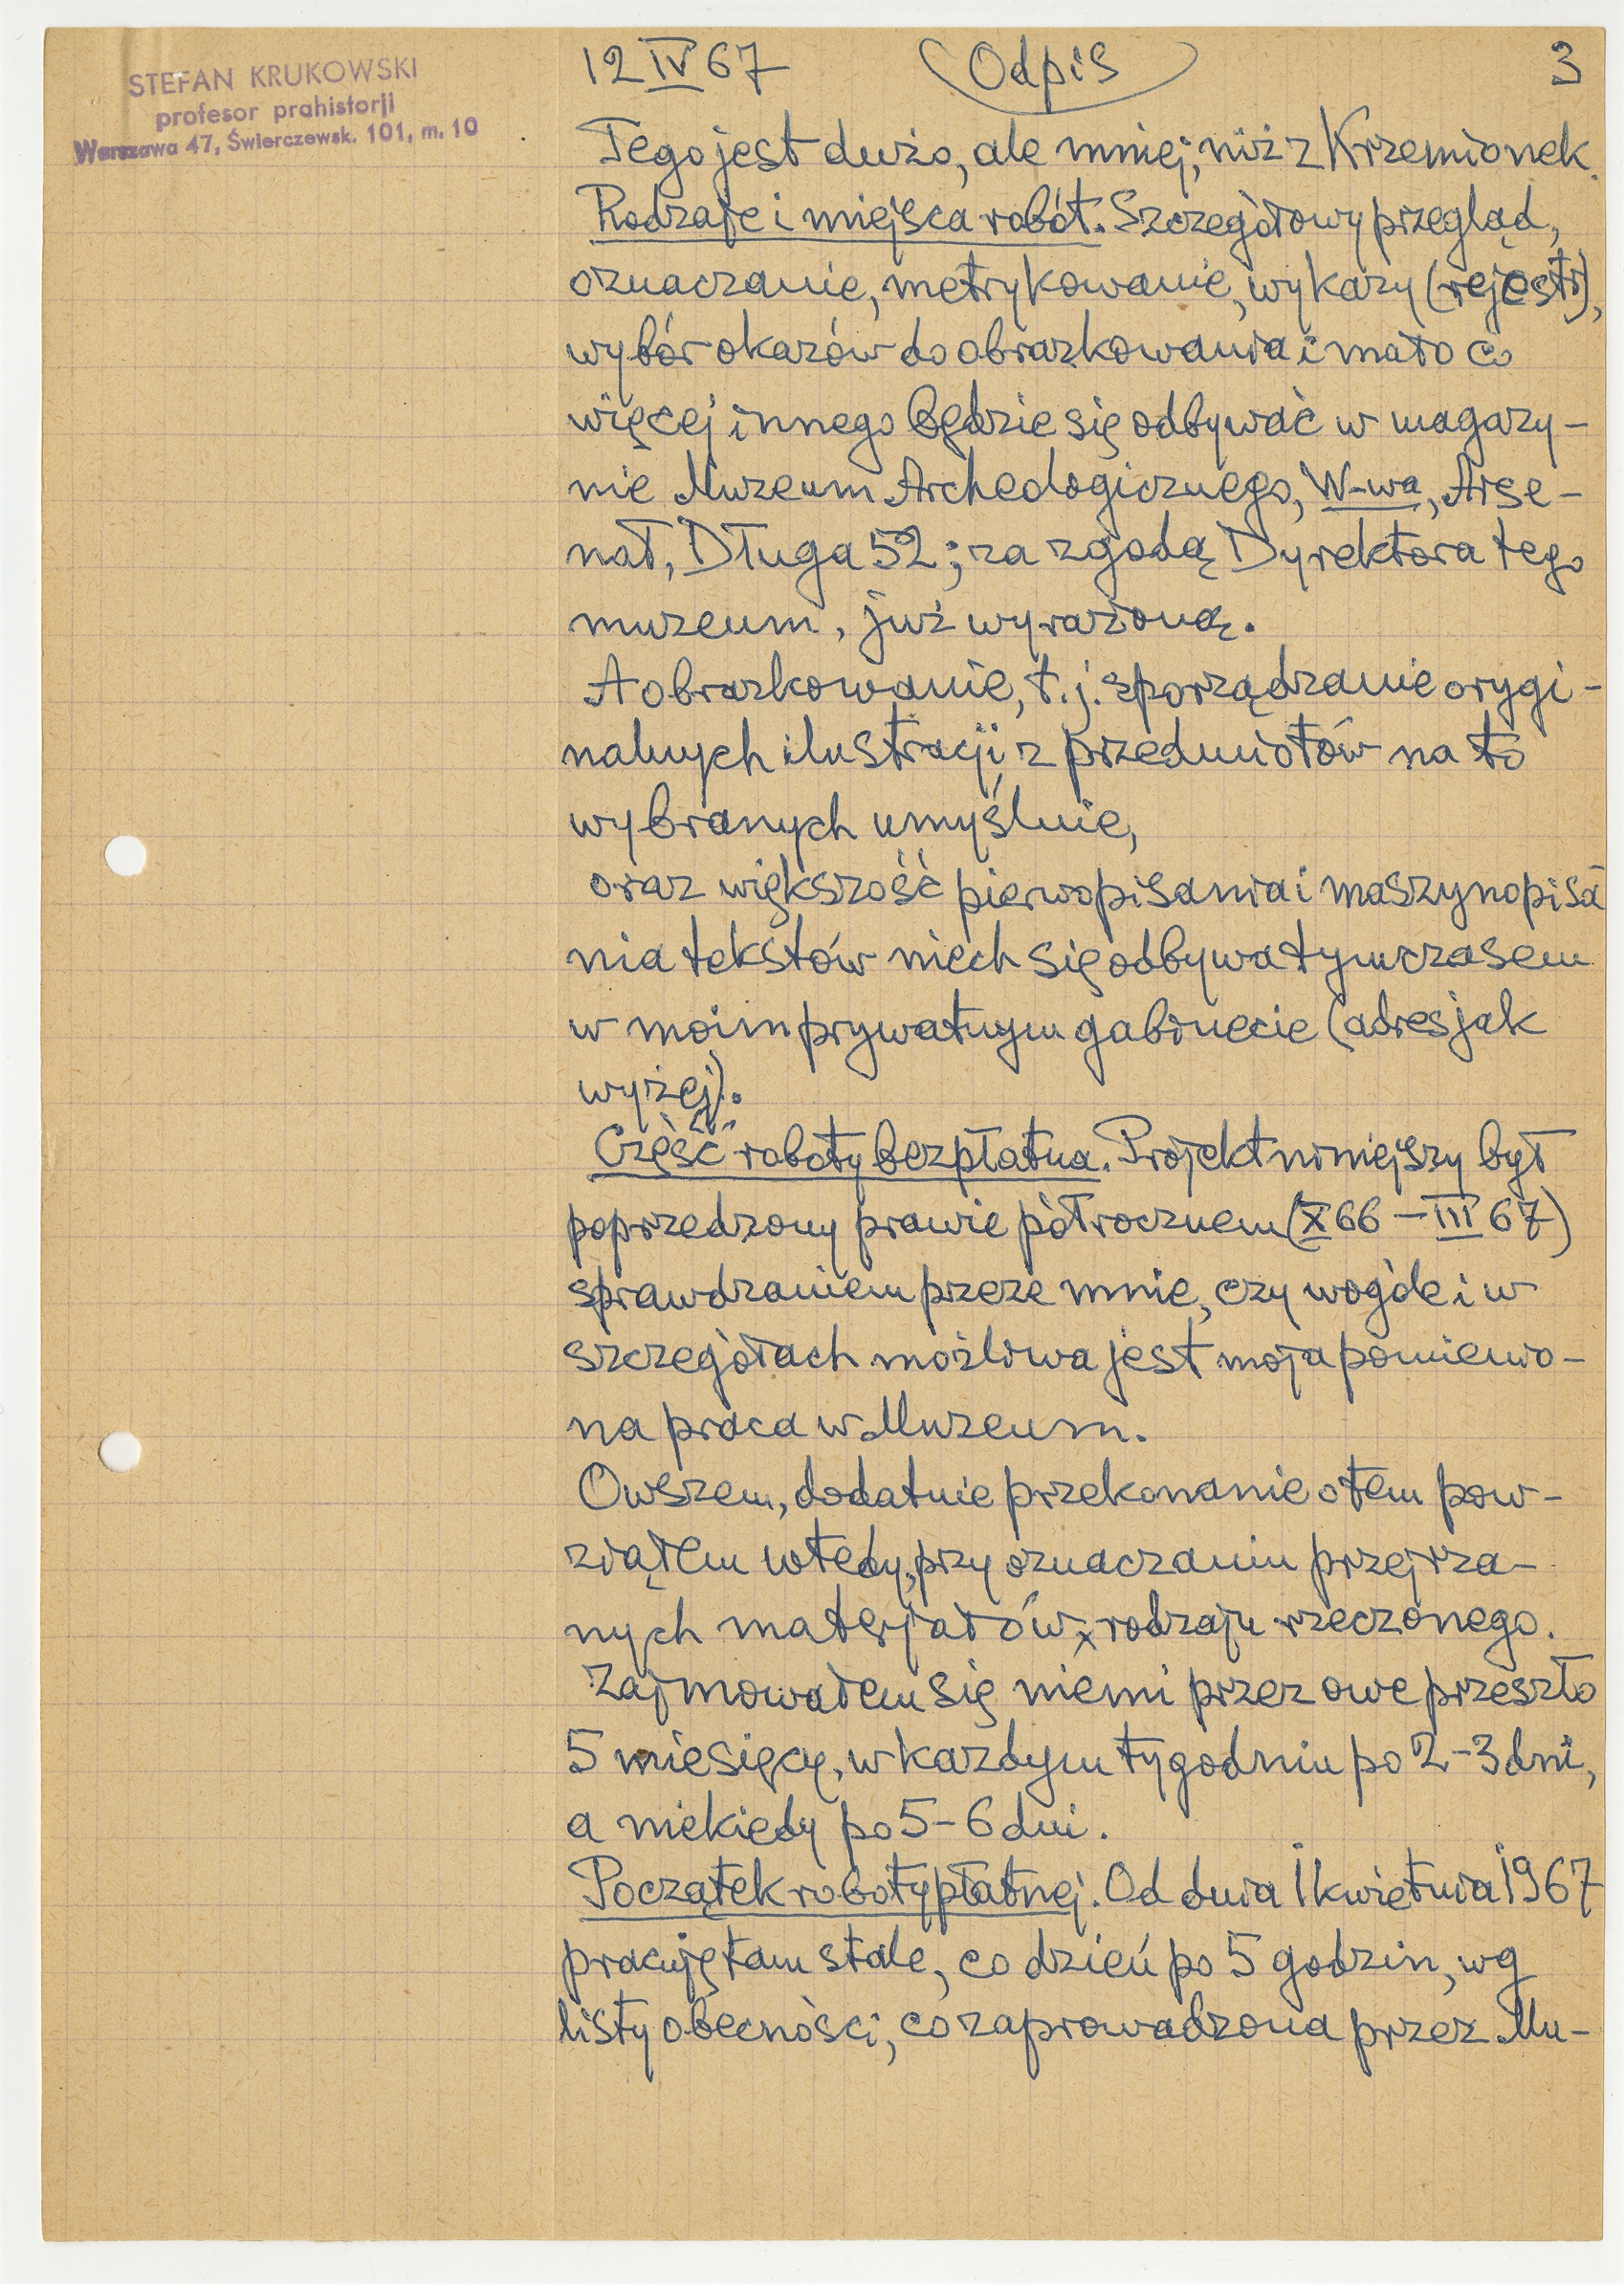 STEFAN KRUKOWSKI
profesor prahistorji
Warszawa 47, Świerczewsk. 101, m. 10
12 IV 67 Odpis 3
Tego jest dużo, ale mniej, niż z Krzemionek.
Rodzaje i miejsca robót. Szczegółowy przegląd,
oznaczanie, metrykowanie, wykazy (rejestr),
wybór okazów do obrazkowania i mało co
więcej innego będzie się odbywać w magazy-
nie Muzeum Archeologicznego, W-wa, Arse-
nał, Długa 52; za zgodą Dyrektora tego
muzeum, już wyrażoną.
A obrazkowanie, t.j. sporządzanie orygi-
nalnych ilustracji z przedmiotów na to
wybranych umyślnie,
oraz większość pierwopisania i maszynopisa
nia tekstów niech się odbywa tymczasem
w moim prywatnym gabinecie (adres jak
wyżej).
Część roboty bezpłatna. Projekt niniejszy był
poprzedzony prawie półrocznem (X 66 – III 67)
sprawdzaniem przeze mnie, czy wogóle i w
szczegółach możliwa jest moja pomienio-
na praca w Muzeum.
Owszem, dodatnie przekonanie o tem pow-
ziąłem wtedy, przy oznaczaniu przejrza-
nych materjałów, rodzaju rzeczonego.
Zajmowałem się niemi przez owe przeszło
5 miesięcy, w każdym tygodniu po 2-3 dni,
a niekiedy po 5-6 dni.
Początek roboty płatnej. Od dnia 1 kwietnia 1967
pracuję tam stale, co dzień po 5 godzin, wg
listy obecności, co zaprowadzona przez Mu-